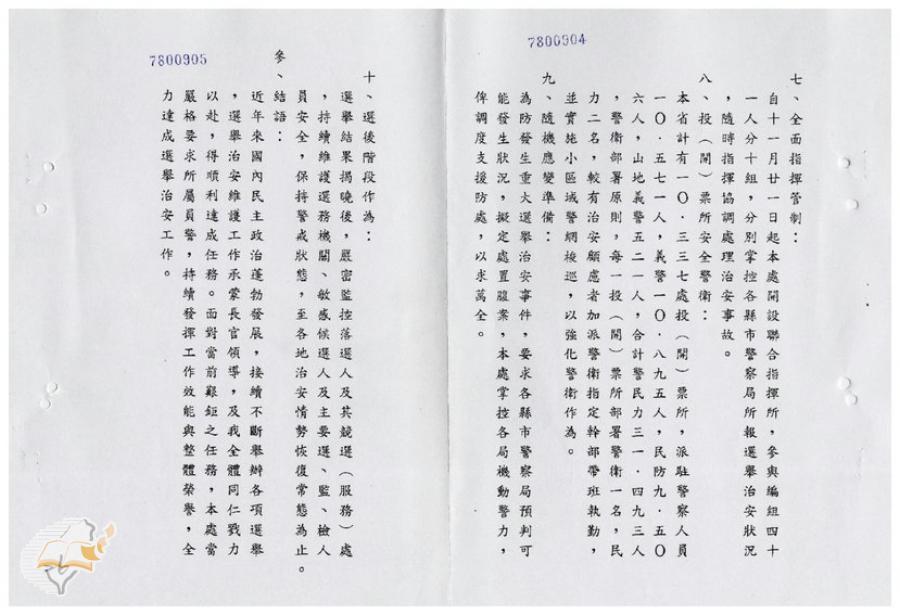 7800904
七、全面指揮管制：
自十一月廿一日起本處開設聯合指揮所，參與編組四十
一人分十組，分別掌控各縣市警察局所報選舉治安狀況
，隨時指揮協調處理治安事故。
八、投（開）票所安全警衛：
本省計有一０．三三七處投（開）票所，派駐警察人員
一０．五七一人，義警一０．八九五人，民防九．五０
六人，山地義警五二一人，合計警民力三一．四九三人
，警衛部署原則，每一投（開）票所部署警衛一名，民
力二名，較有治安顧慮者加派警衛指定幹部帶班執勤，
並實施小區域警網梭巡，以強化警衛作為。
九、隨機應變準備：
為防發生重大選舉治安事件，要求各縣市警察局預判可
能發生狀況，擬定處置腹案，本處掌控各局機動警力，
俾調度支援防處，以求萬全。
7800905
十、選後階段作為：
選舉結果揭曉後，嚴密監控落選人及其競選（服務）處
，持續維護選務機關、敏感候選人及主要選、監、檢人
員安全，保持警戒狀態，至各地治安情勢恢復常態為止。
參、結語：
近年來國內民主政治蓬勃發展，接續不斷舉辦各項選舉
，選舉治安維護工作承蒙長官領導，及我全體同仁戮力
以赴，得順利達成任務。面對當前艱鉅之任務，本處當
嚴格要求所屬員警，持續發揮工作效能與整體榮譽，全
力達成選舉治安工作。